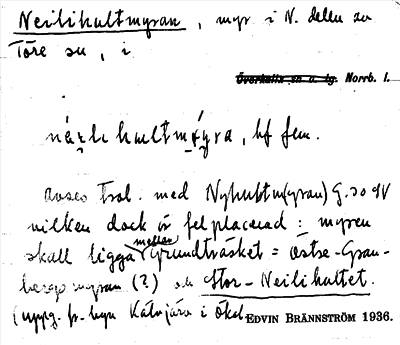 Neilihultmyran, myr i N. delen av
Töre sn, i
Överkalix sn o. tg. Norrb. l.
hultmýra, bf fem.
avses trol. med Nyhultm(yran) G.30 gV
vilken dock är felplacerad: myren
skall ligga mellan Grundträsket = Östre-Gran-
bergsmyran (?) och Stor-Neilihultet.
(uppg. fr. byn Kälvjärv i ökal.
EDVIN BRÄNNSTRÖM 1936.